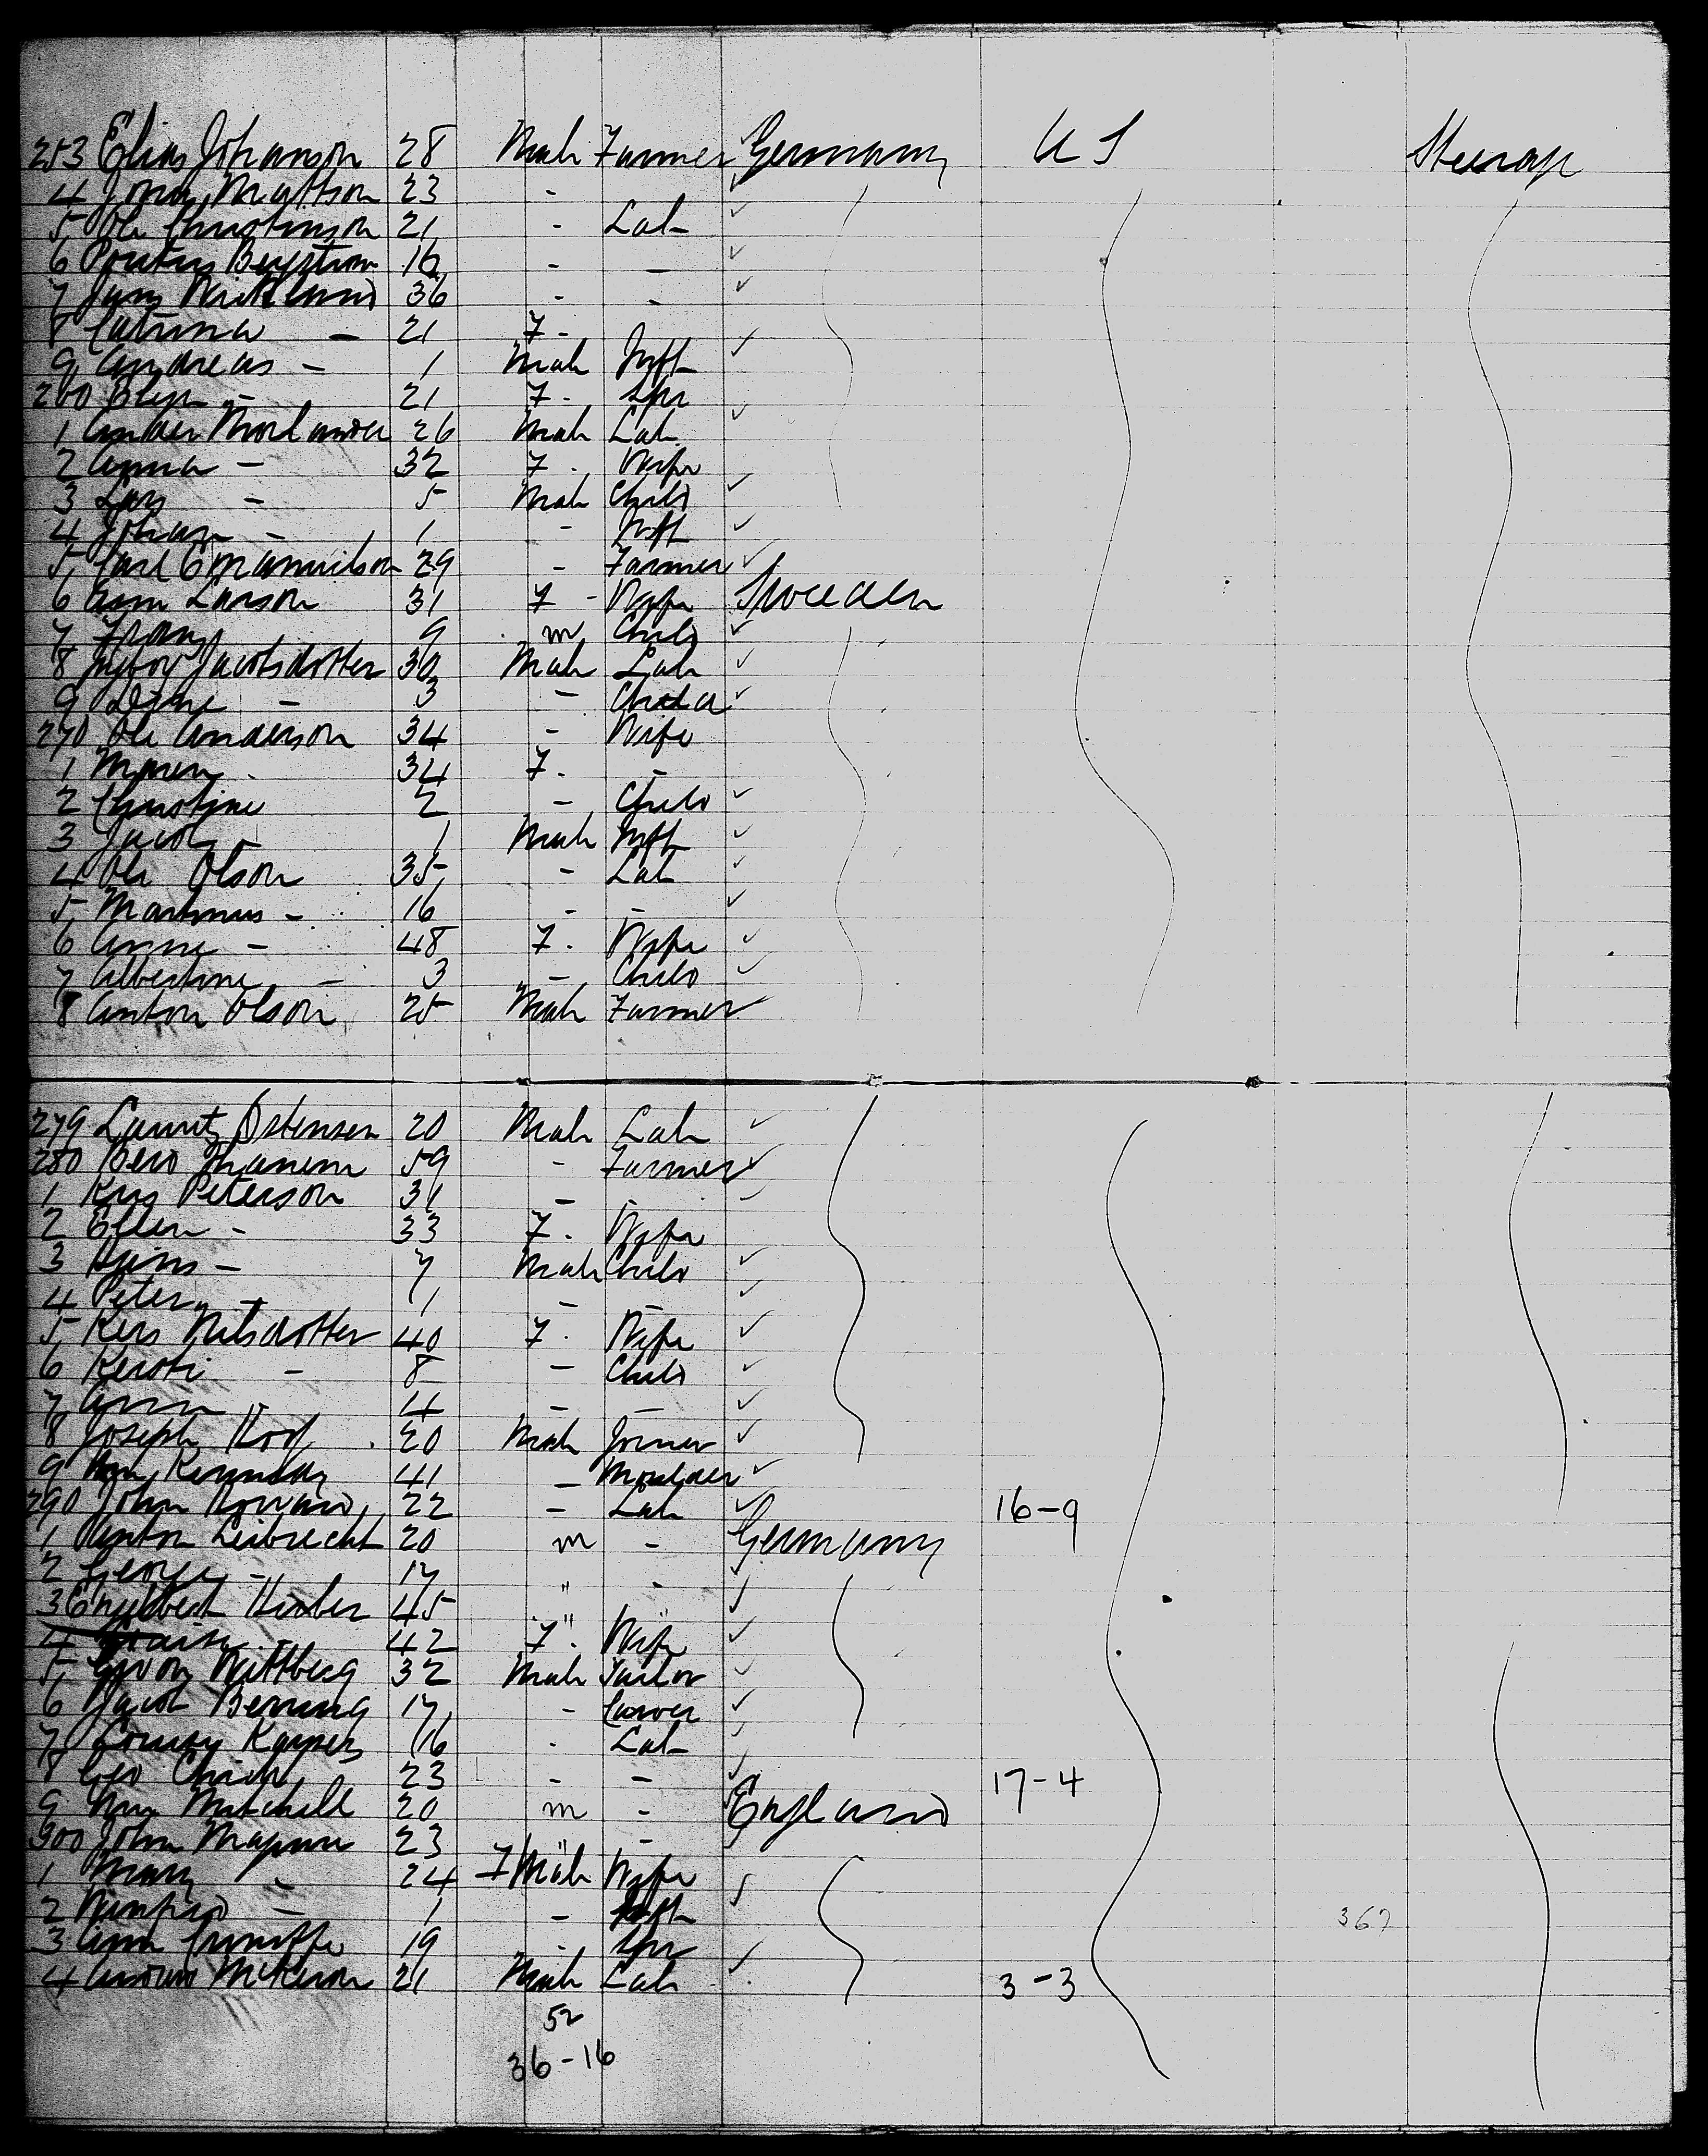 253 Elias Johanson 28 Male Farmer Germany U S Steerage
4 Jonas Mattson 23 -
5 Ole Christinson 21 - Lab
6 Pontus Bergstrom 16 - -
7 36 - -
8 Catrina - 21 F -
9 Andreas - 1 Male Inft
260 - 21 F. Spr
1 Ander Morlander 26 Male Lab
2 Anna - 32 F. Wife
3 Lars - 5 Male Child
4 Johan - 1 - Inft
5 Carl Emanuelson 29 - Farmer
6 Larson 31 F - Wife Sweeden
7 Franz 9 m Child
8 Jacobsdotter 30 Male Lab
9 - 3 - Child
270 Ole Anderson 34 - Wife
1 Maren 34 F. -
2 Christine 2 - Child
3 Jacob - 1 Male Inft
4 Ole Olson 35 - Lab
5 Martinus - 16 - -
6 Anne - 48 F. Wife
7 Albertine - 3 - Child
8 Anton Olson 25 Male Farmer
279 Ostensen 20 Male Lab
280 59 - Farmer
1 Peterson 31 - -
2 Ellen - 33 F. Wife
3 Hans - 7 Male Child
4 Peter - 1 - -
5 Kers Nilsdotter 40 F. Wife
6 Kersti - 8 - Child
7 Ann - 4 - -
8 Joseph 20 Male Joiner
9 Wm Kennedy 41 - Moulder
290 John 22 - Lab 16-9
1 Anton Leibrecht 20 m - Germany
2 George - 17 " -
3 Engelbert 45 "
4 Louise - 42 F. Wife
5 Wittberg 32 Male Tailor
6 Jacob Benning 17 -
7 16 - Lab
8 Geo 23 - - 17-4
9 Wm Mitchell 20 m - England
300 John 23 " -
1 Mary - 24 F Male Wife
2 - 1 - Inft
3 Ann 19 - Spr
4 21 Male Lab 3-3
367
52
36-16